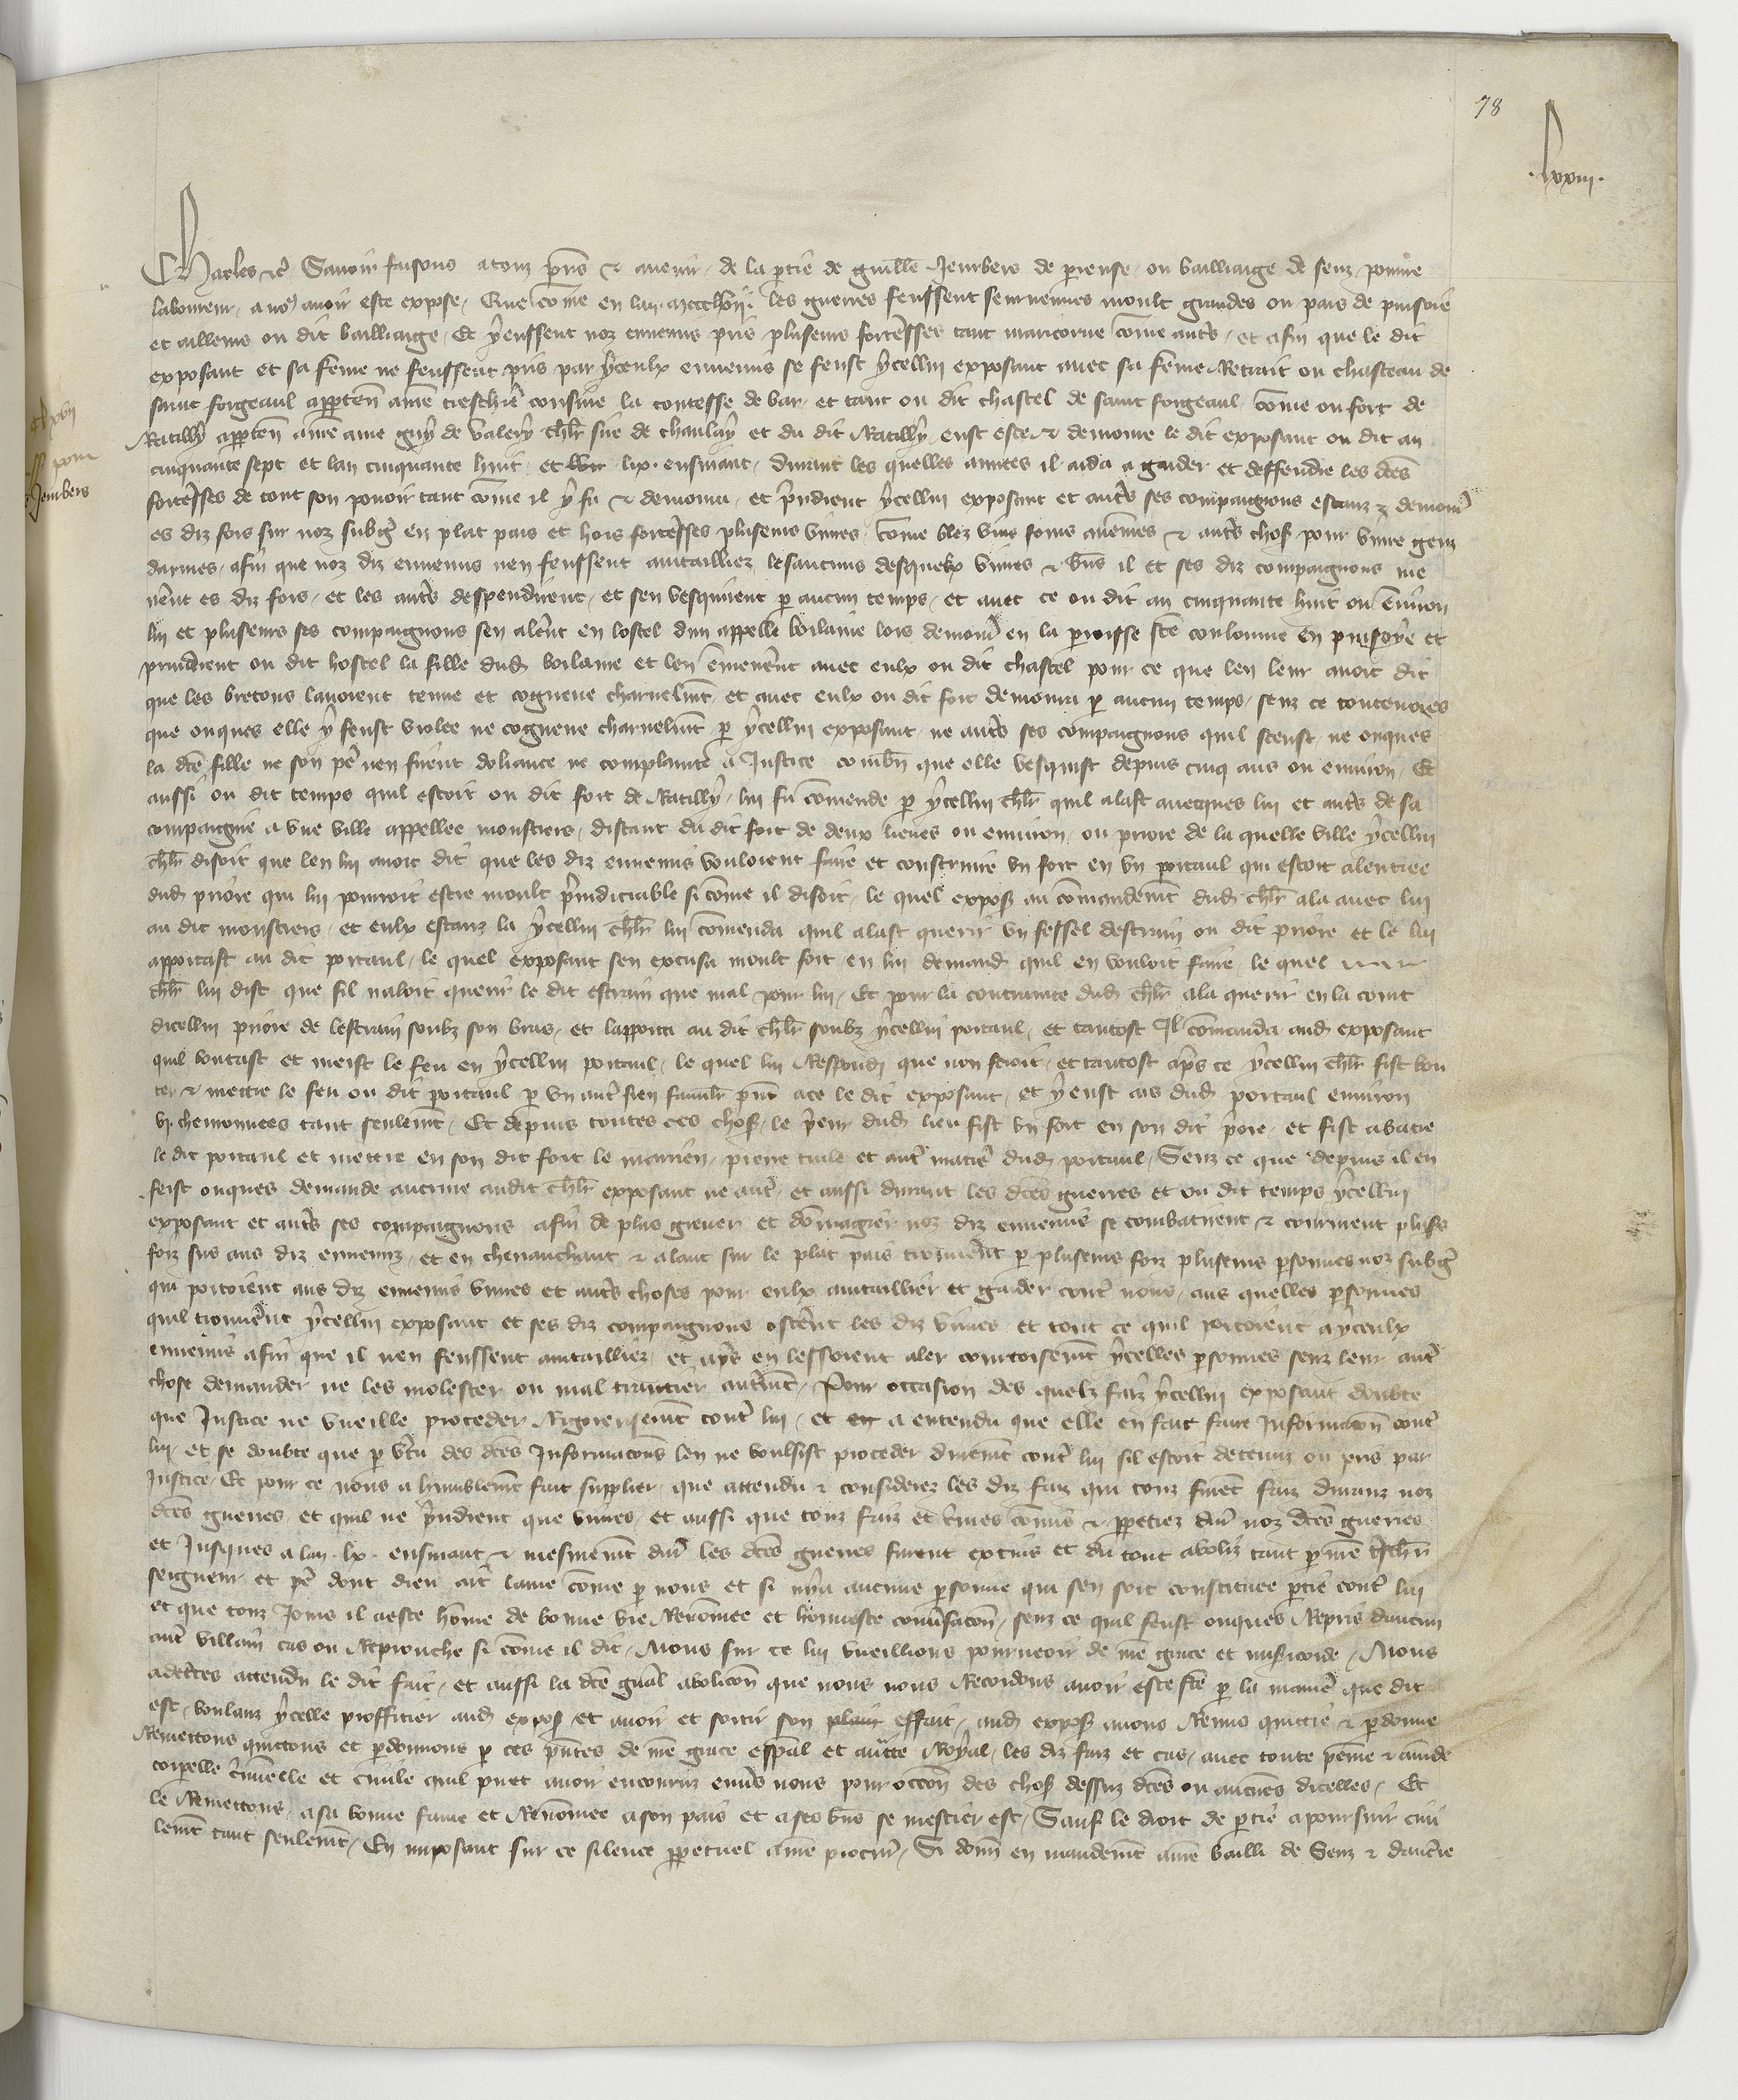 78
.lxxiii.
Charles etc Savoir faisons a touz pns et avenir de la ptie de guille Jembers de preuse ou bailliaige de Senz povre
laboureur a nos avoir este expose Que come en lan mccclvij les guerres feussent seurvenues moult grandes ou pais de puisoie
et ailleurs ou dit bailliaige Et y eussent noz ennemis pris plusieurs forteresses tant malicorne come autrs et afin que le dit
exposant et sa feme ne feussent pris par yceulx ennemis se feust ycellui exposant avec sa feme Retrait ou chasteau de
saint forgeaul apparten a nre treschiere cousine la contesse de bar et tant ou dit chastel de saint forgeaul come ou fort de
Ratilly apparten a nre ame guy de valery chlr sire de chaulay et du dit Ratilly eust este et demoure le dit exposant ou dit an
cinquante sept et lan cinquante huit et lix ensuivant durant les quelles annees il aida a garder et deffendre les dces
forteresses de tout son povoir tant come il y fu et demoura et prindrent ycellui exposant et autrs ses compaignons estanz et demour
es diz fors sur noz subgez en plat pais et hors forteresses plusieurs vivres come blez vins foins avenes et autrs chos pour vivre genz
darmes afin que noz diz ennemis nen feussent avitailliez lesaucuns desquelx vivres et bns il et ses diz compaignons me
nerent es diz fors et les autrs despendirent et sen vesquirent p aucun temps et avec ce ou dit an cinquante huit ou environ
lui et plusieurs ses compaignons sen alerent en lostel dun appelle voilame lors demour en la proisse ste coulonme en puisoye et
prindrent ou dit hostel la fille dud voilame et len emenerent avec eulx ou dit chastel pour ce que len leur avoit dit
que les bretons lavoient tenue et cogneue charnelmt et avec eulx ou dit fort demoura p aucun temps senz ce toutevoies
que onques elle y feust violee ne cogneue charnelmt p ycellui exposant ne autrs ses compaignons quil sceust ne onques
la dce fille ne son pere nen firent doliance ne complainte a Justice combn que elle vesquist depuis cinq ans ou environ Et
aussi ou dit temps quil estoit ou dit fort de Ratilly lui fu comende p ycellui chlr quil alast avecques lui et autrs de sa
compaignie a une ville appellee monstiers distant du dit fort de deux lieues ou environ ou priore de la quelle ville ycellui
chlr disoit que len lui avoit dit que les diz ennemis vouloient faire et construire un fort en un portaul qui estoit alentree
dud priore qui lui pourroit estre moult preiudiciable si come il disoit le quel expos au comandemt dud chlr ala avec lui
au dit monstiers et eulx estanz la ycellui chlr lui comenda quil alast querir un fessel destrain ou dit priore et le lui
apportast au dit portaul le quel exposant sen excusa moult fort en lui demand quil en vouloit faire le quel
chlr lui dist que sil naloit querir le dit estrain que mal pour lui Et pour la contrainte dud chlr ala querir en la court
dicellui priore de lestrain soubz son bras et lapporta au dit chlr soubz ycellui portaul et tantost Il comanda aud exposant
quil boutast et meist le feu en ycellui portaul le quel lui Respondi que non feroit et tantost aps ce ycellui chlr fist bou
ter et mettre le feu ou dit portaul p un autre sien famili pnt ace le dit exposant et y eust ars dud portaul environ
vj chevronnees tant seulemt Et depuis toutes ces chos le prieur dud lieu fist un fort en son dit priore et fist abatre
le dit portaul et mettre en son dit fort le marrien pierre tuile et autre matiere dud portaul Senz ce que depuis il en
feist onques demande aucune audit chlr exposant ne autre et aussi durant les dces guerres et ou dit temps ycellui
exposant et autrs ses compaignons afin de plus grever et domagier noz diz ennemis se combatirent et coururent plusrs
foiz sus aus diz ennemiz et en chevauchant et alant sur le plat pais trouverent p plusieurs foiz plusieurs psonnes noz subgez
qui portoient aus diz ennemis vivres et autrs choses pour eulx avitaillier et garder contre nous aus quelles psonnes
quil trouverent ycellui exposant et ses diz compaignons osterent les diz vivres et tout ce quil portoient a yceulx
ennemis afin que il nen feussent avitailliez et aps en lessoient aler courtoisemt ycelles psonnes senz leur autre
chose demander ne les molester ou mal traittier autremt Pour occasion des quelz faiz ycellui exposant doubte
que Justice ne vueille proceder Rigoreusemt contre lui et a entendu que elle en fait faire Informacon contre
lui et se doubte que p vertu des dces Informacons len ne voulsist proceder duremt contre lui sil estoit detenuz ou pris par
Justice Et pour ce nous a humblemt fait supplier que attendu et considerez les diz faiz qui touz furent faiz duranz noz
dces guerres et quil ne prindrent que vivres et aussi que touz faiz et crimes comis et ppetrez dur noz dces guerres
et Jusques a lan lx ensuivant et mesmemt dur les dces guerres furent extins et du tout aboliz tant p nre treschr
seigneur et pere dont dieu ait lame come p nous et si nya aucune psonne qui sen soit constituee ptie contre lui
et que touz Jours il a este home de bonne vie Renomee et honneste conversacon senz ce quil feust onques Repris daucun
autre villain cas ou Reprouche si come il dit Nous sur ce lui vueillions pourveoir de nre grace et misericorde Nous
adecertes attendu le dit fait et aussi la dce gnal abolicon que nous nous Recordons avoir este fte p la maniere que dit
est voulanz ycelle proffitier aud expos et avoir et sortir son plain effait aud expos avons Remis quittie et pdonne
Remettons quittons et pdonnons p ces pntes de nre grace espal et auctte Royal les diz faiz et cas avec toute peine et amde
corpelle criminelle et civile quil puet avoir encouruz envers nous pour occon des chos dessuz dces ou aucunes dicelles Et
le Remettons a sa bonne fame et Renomee a son pais et a ses bns se mestier est Sauf le droit de ptie a poursuir civi
lemt tant seulemt En imposant sur ce silence ppetuel a nre procur Si donn en mandemt a nre bailli de Senz et daucerre